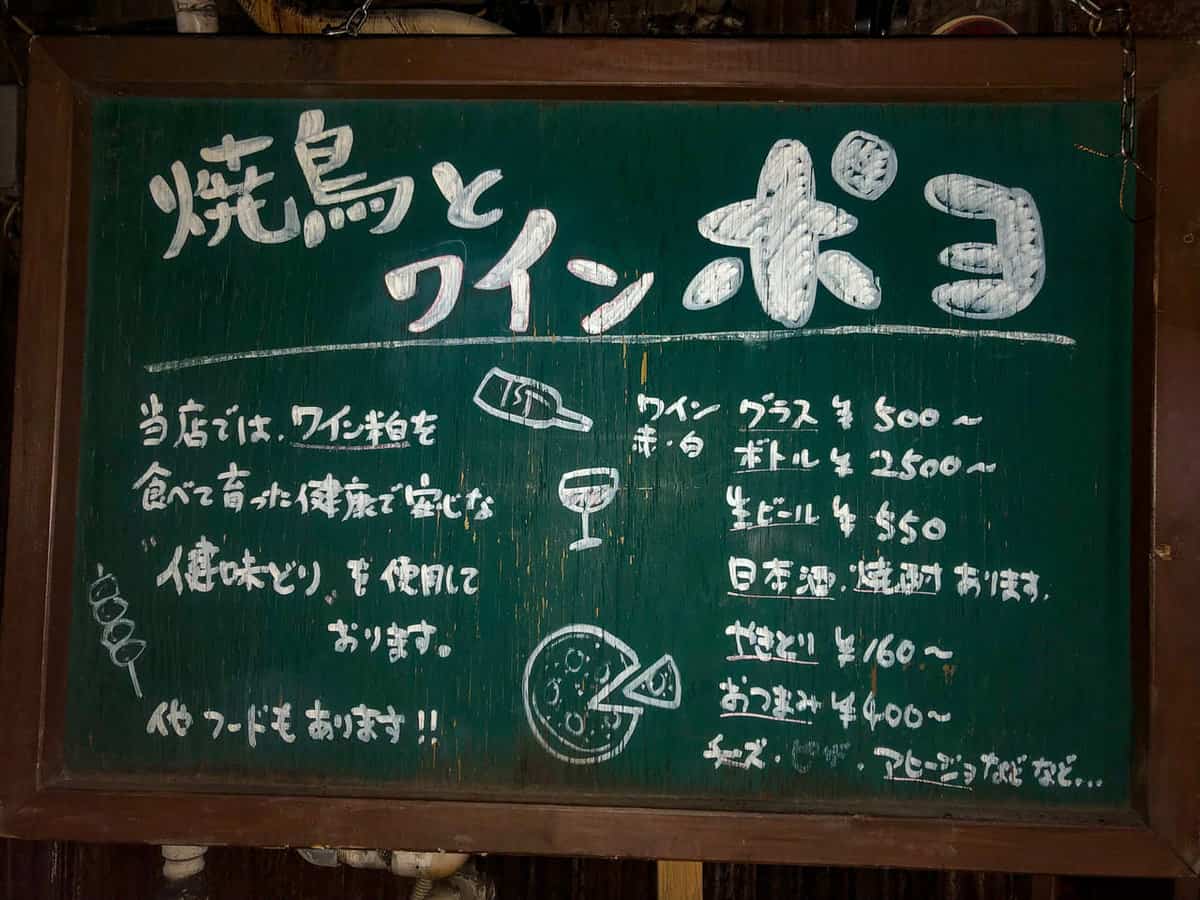 焼鳥と
ワイン
ポヨ
当店では、ワイン粕を
食べて育った健康で安心な
"健味どり"を使用して
おります。
他フードもあります!!
ワイン
赤・白
グラス ¥500〜
ボトル ¥2500〜
生ビール ¥550
日本酒・焼酎あります。
やきとり ¥160〜
おつまみ ¥400〜
チーズ・ピザ・アヒージョなどなど...